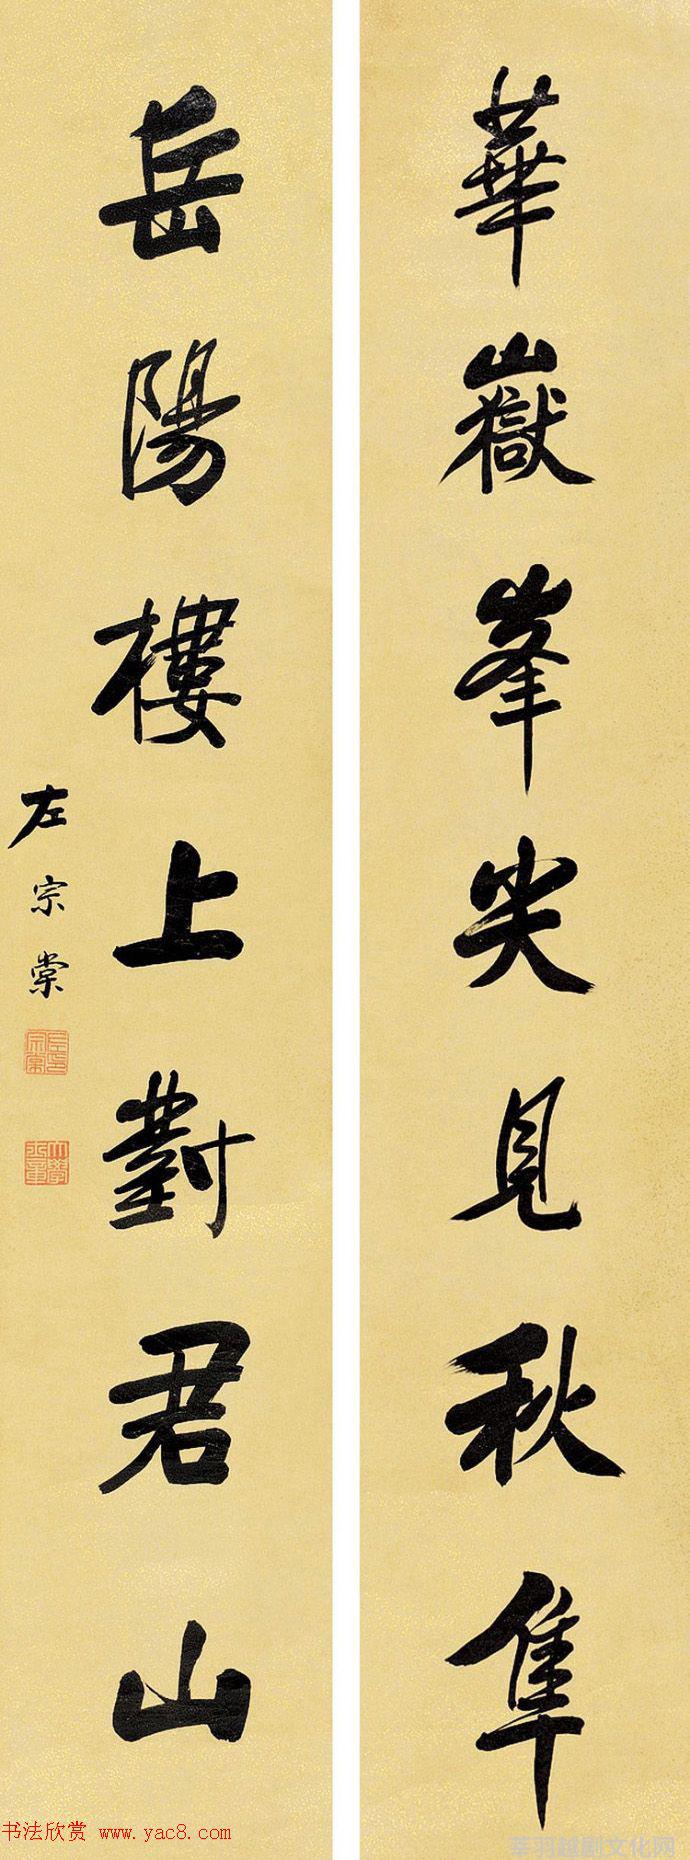 華嶽峯尖見秋隼
岳陽樓上對君山
左宗棠
书法欣赏 www.yac8.com
莘羽越剧文化网